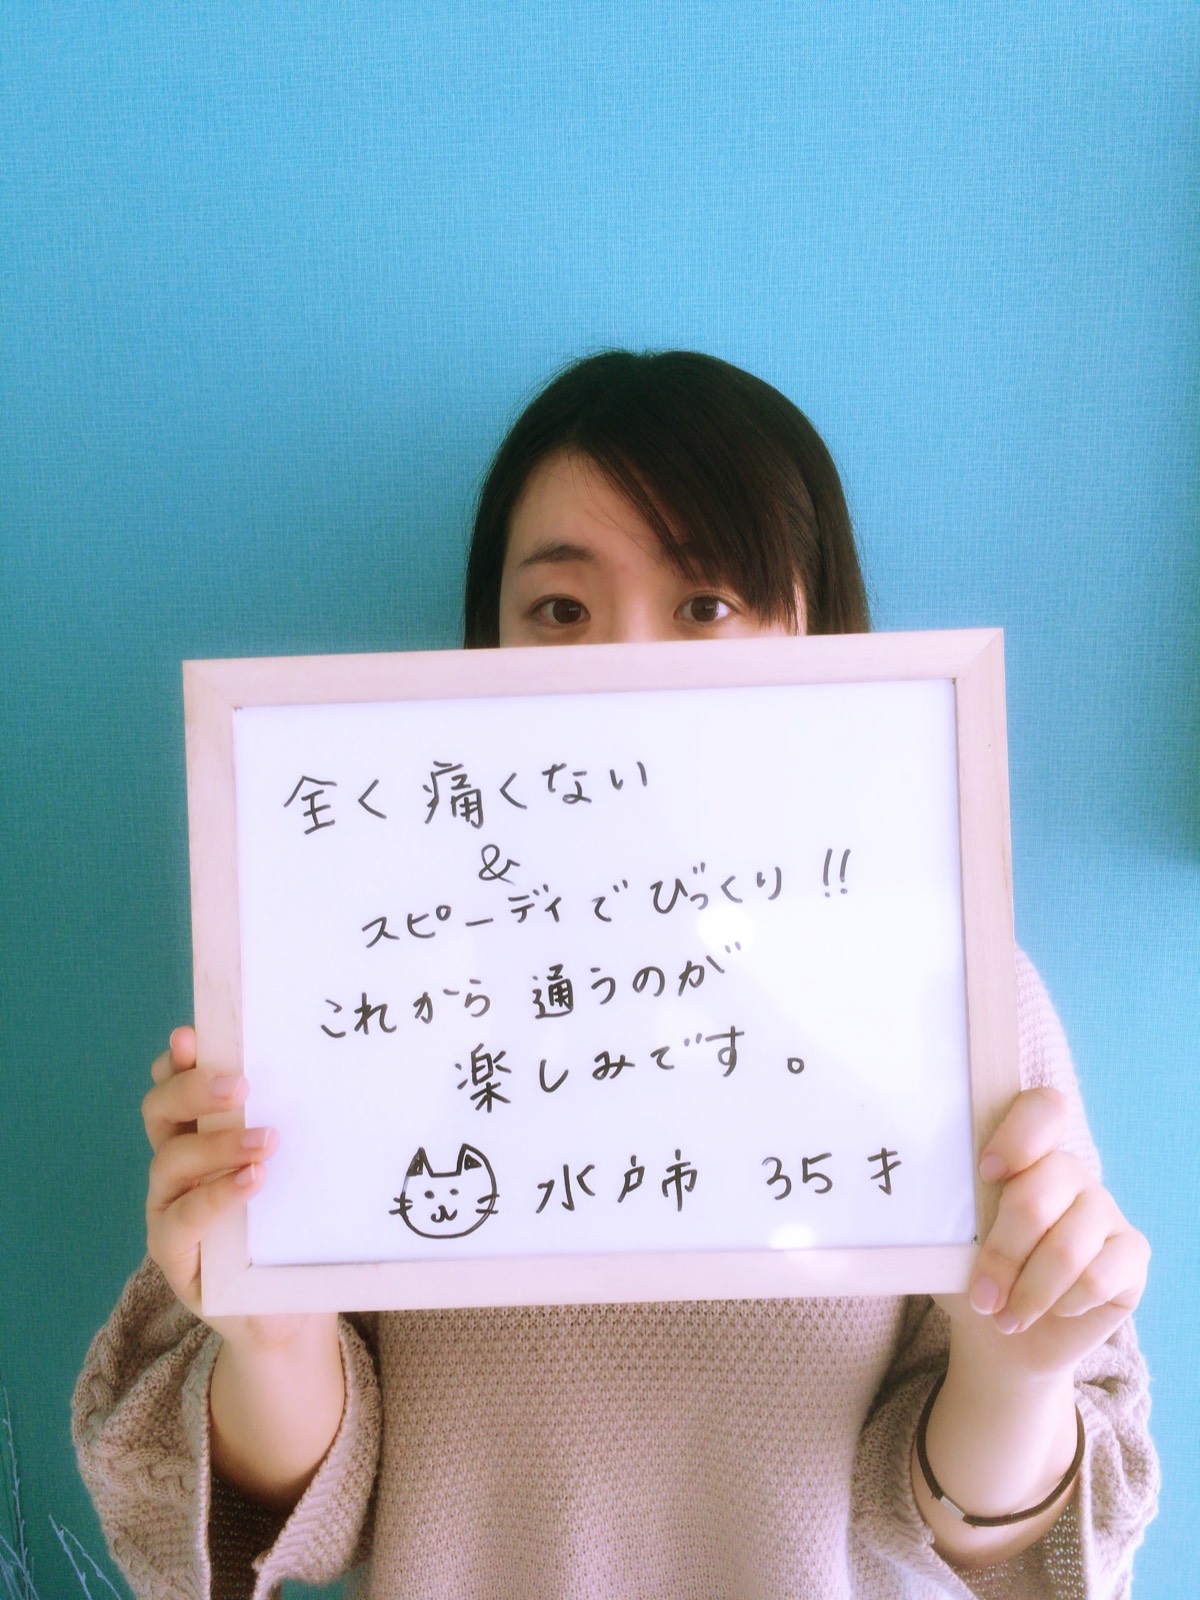 全く痛くない
&
スピーディでびっくり!!
これから通うのが
楽しみです。
水戸市 35才